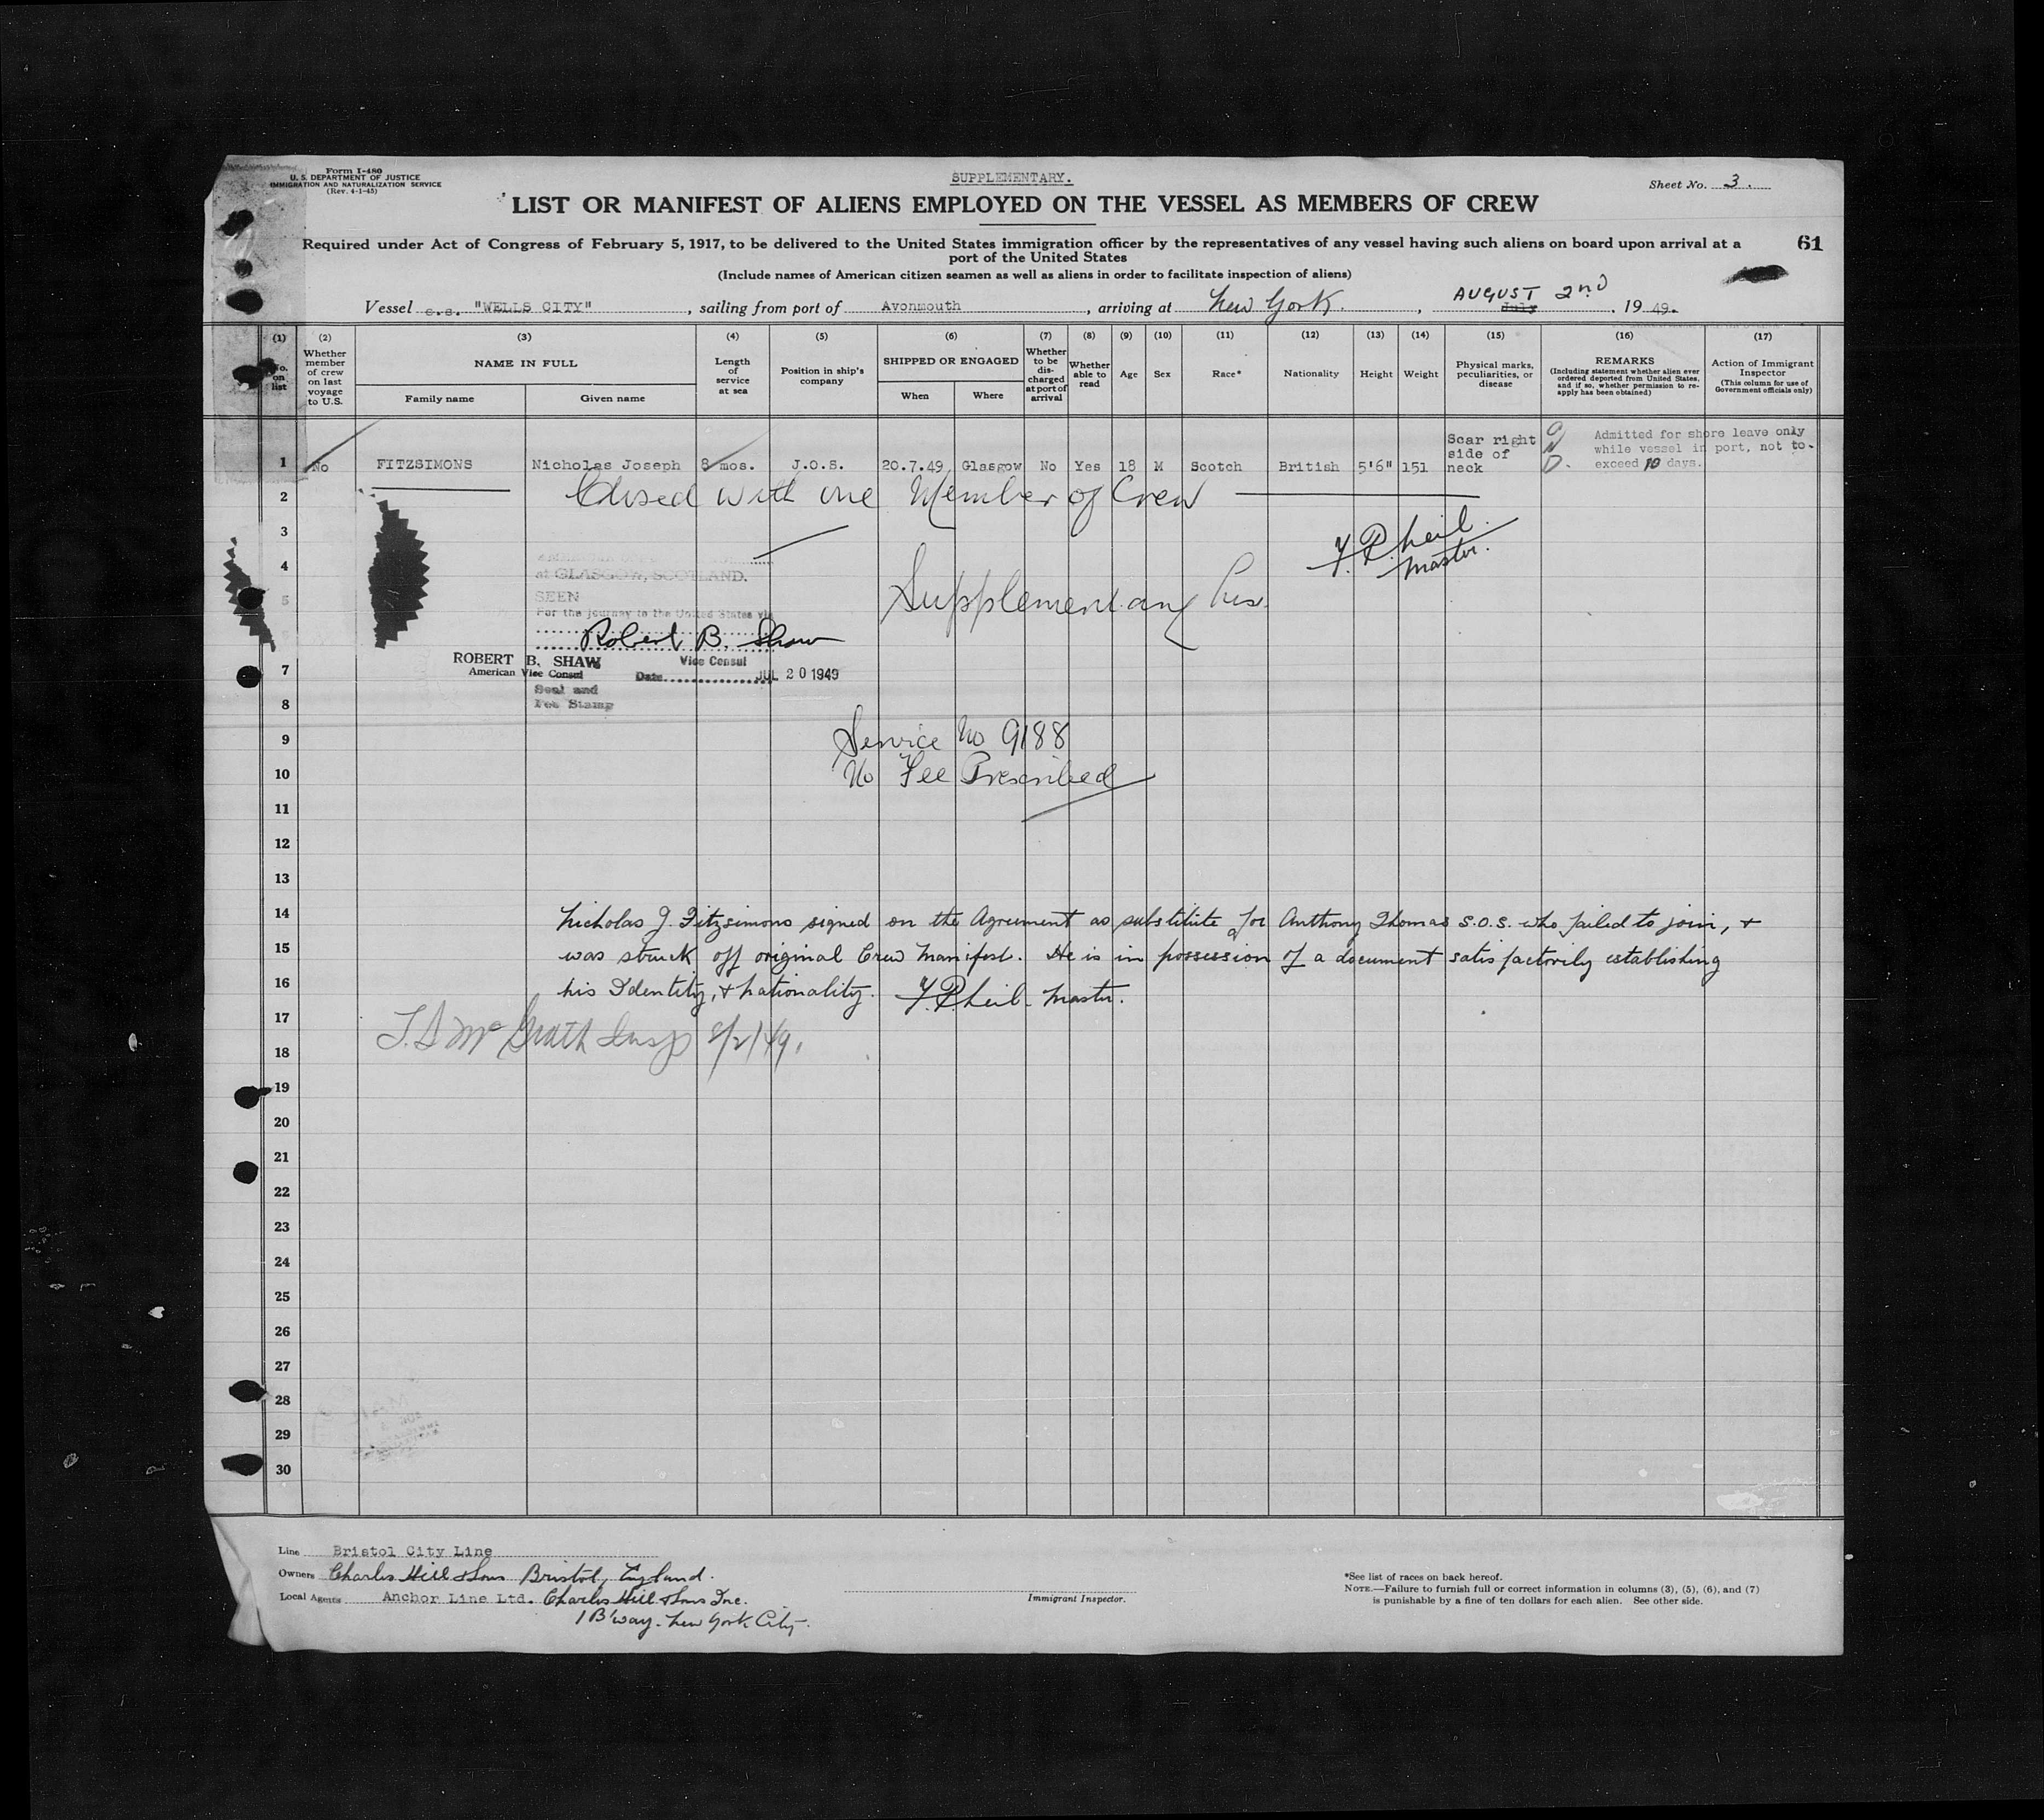 Form I-480
U. S. DEPARTMENT OF JUSTICE
IMMIGRATION AND NATURALIZATION SERVICE
(Rev. 4-1-45)
SUPPLEMENTARY.
Sheet No. 3.
LIST OR MANIFEST OF ALIENS EMPLOYED ON THE VESSEL AS MEMBERS OF CREW
Required under Act of Congress of February 5, 1917, to be delivered to the United States immigration officer by the representatives of any vessel having such aliens on board upon arrival at a
port of the United States
61
(Include names of American citizen seamen as well as aliens in order to facilitate inspection of aliens)
Vessel s.s. "WELLS CITY", sailing from port of Avonmouth, arriving at New York, AUGUST 2nd July, 1949.
(1) (2) (3) (4) (5) (6) (7) (8) (9) (10) (11) (12) (13) (14) (15) (16) (17)
No. on list
Whether member of crew on last voyage to U.S.
NAME IN FULL
Family name
Given name
Length of service at sea
Position in ship's company
SHIPPED OR ENGAGED
When
Where
Whether to be discharged at port of arrival
Whether able to read
Age
Sex
Race*
Nationality
Height
Weight
Physical marks, peculiarities, or disease
REMARKS
(Including statement whether alien ever ordered deported from United States, and if so, whether permission to re-apply has been obtained)
Action of Immigrant Inspector
(This column for use of Government officials only)
1 No FITZSIMONS Nicholas Joseph 8 mos. J.O.S. 20.7.49 Glasgow No Yes 18 M Scotch British 5'6" 151 Scar right side of neck
Admitted for shore leave only
while vessel in port, not to
exceed 10 days.
2 Closed with one Member of Crew
3
master.
4
at GLASGOW, SCOTLAND.
Supplementary
5
SEEN
For the journey to the United States via
Robert B. Shaw
ROBERT B. SHAW Vice Consul
American Vice Consul Date JUL 20 1949
7
Seal and
Fee Stamp
8
9 Service No 9188
10 No Fee Prescribed
11
12
13
14 Nicholas J. Fitzsimons signed on the Agreement as substitute for Anthony Thomas S.O.S. who failed to join, &
15 was struck off original Crew Manifest. He is in possession of a document satisfactorily establishing
16 his Identity, & Nationality. Master.
17
McGrath Insp 8/2/49.
18
19
20
21
22
23
24
25
26
27
28
29
30
Line Bristol City Line
Owners Charles Hill & Sons Bristol, England.
Local Agents Anchor Line Ltd. Charles Hill & Sons Inc.
1 B'way. New York City.
Immigrant Inspector.
*See list of races on back hereof.
NOTE.—Failure to furnish full or correct information in columns (3), (5), (6), and (7)
is punishable by a fine of ten dollars for each alien. See other side.